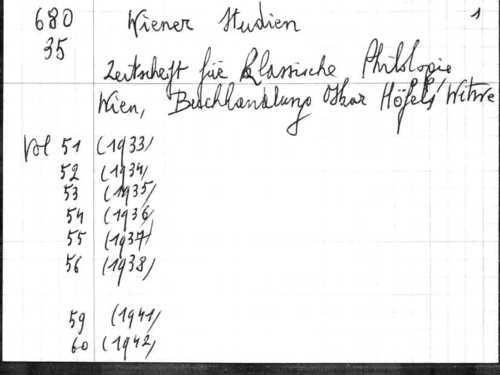 680 Wiener Studien 1
35
Zeitschrift für Klassische Philologie
Wien, Buchhandlung Oskar Höfels' Witwe
Vol 51 (1933)
52 (1934)
53 (1935)
54 (1936)
55 (1937)
56 (1938)
59 (1941)
60 (1942)